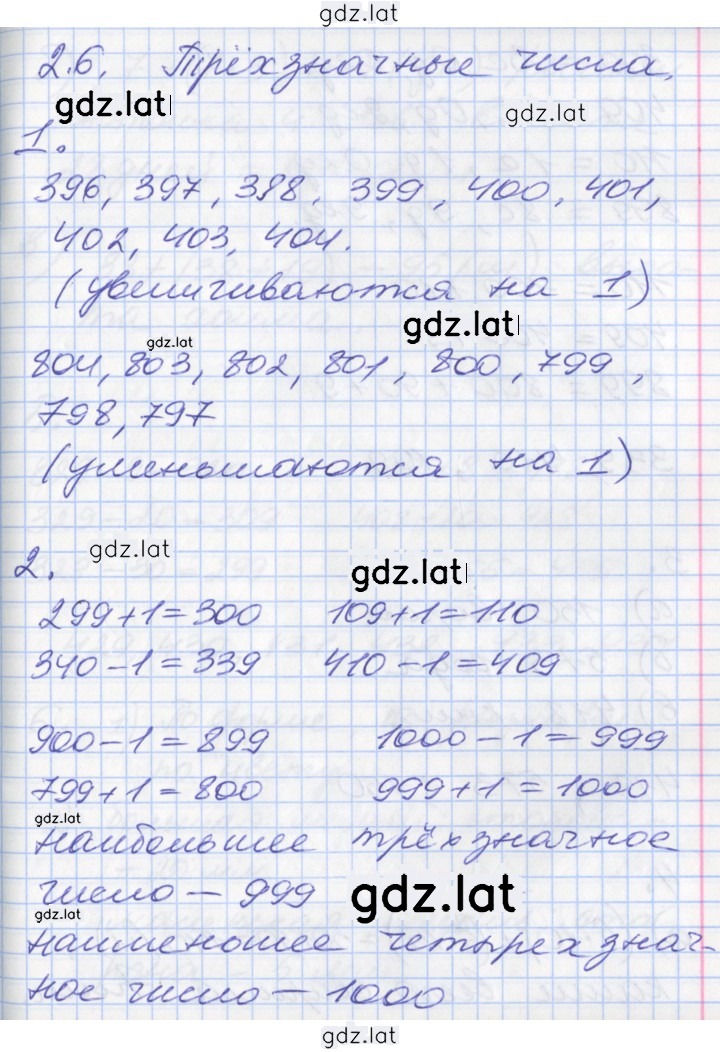 gdz.lat
2.6. Трёхзначные числа.
gdz.lat
gdz.lat
1.
396, 397, 398, 399, 400, 401,
402, 403, 404.
(увеличиваются на 1)
gdz.lat
gdz.lat
804, 803, 802, 801, 800, 799,
798, 797
(уменьшаются на 1)
gdz.lat
2.
gdz.lat
299+1=300 109+1=110
340-1=339 410-1=409
900-1=899 1000-1=999
799+1=800 999+1=1000
gdz.lat
наибольшее трёхзначное
число - 999
gdz.lat
gdz.lat
наименьшее четырехзнач-
ное число - 1000
gdz.lat